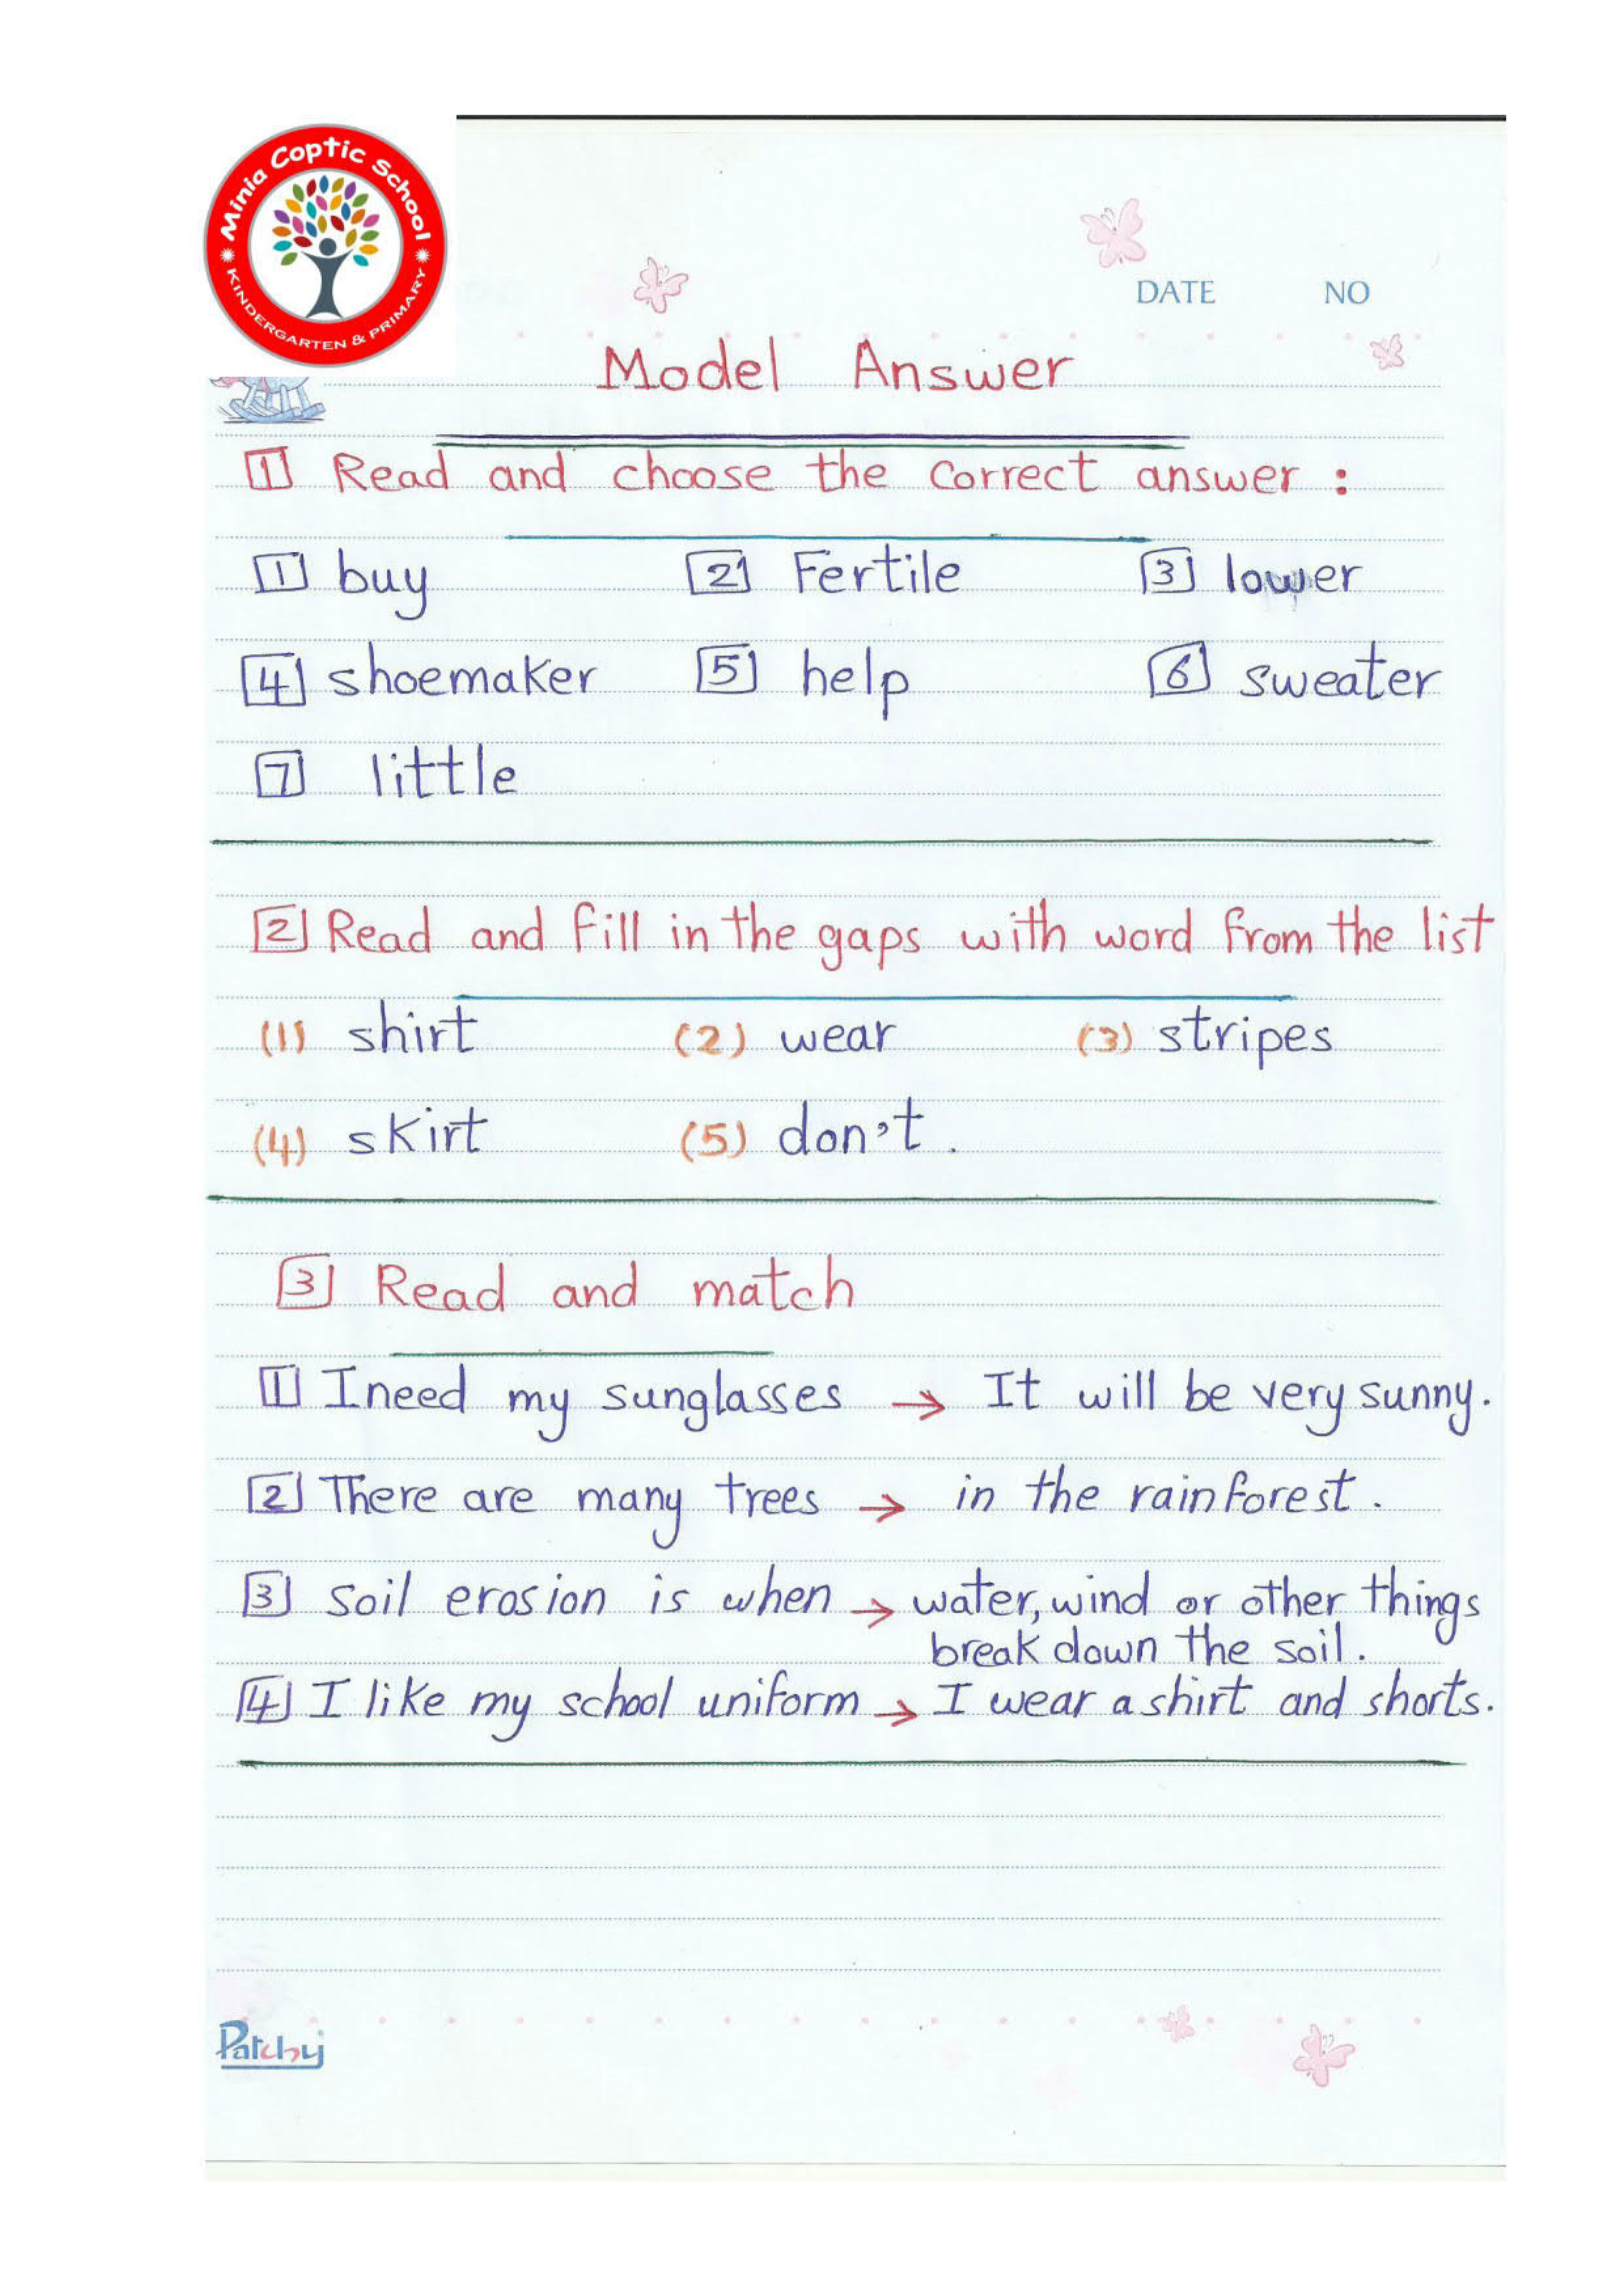 Minia Coptic School
KINDERGARTEN & PRIMARY
DATE NO
Model Answer
1 Read and choose the correct answer :
1 buy 2 Fertile 3 lower
4 shoemaker 5 help 6 sweater
7 little
2 Read and fill in the gaps with word from the list
(1) shirt (2) wear (3) stripes
(4) skirt (5) don't .
3 Read and match
1 I need my sunglasses → It will be very sunny.
2 There are many trees → in the rainforest .
3 soil erosion is when → water, wind or other things
break down the soil .
4 I like my school uniform → I wear a shirt and shorts.
Patchy